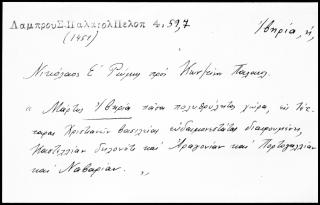 Λαμπρου Σ. Παλαιολ Πελοπ 4, 59, 7
Ἰβηρία, ἡ,
(1451)
Νικόλαος Ε΄ Ῥώμης πρὸς Κων/τῖνον Παλαιολ.
" Μάρτυς Ἰβηρία πᾶσα πολυθρύλητος χώρα, εἰς τέτ-
ταρας Χριστιανῶν βασιλείας εὐδαιμονεστάτας διαιρουμένη,
Καστελλίαν δηλονότι καὶ Ἀραγονίαν καὶ Πορτογαλλίαν
καὶ Ναβαρίαν. "